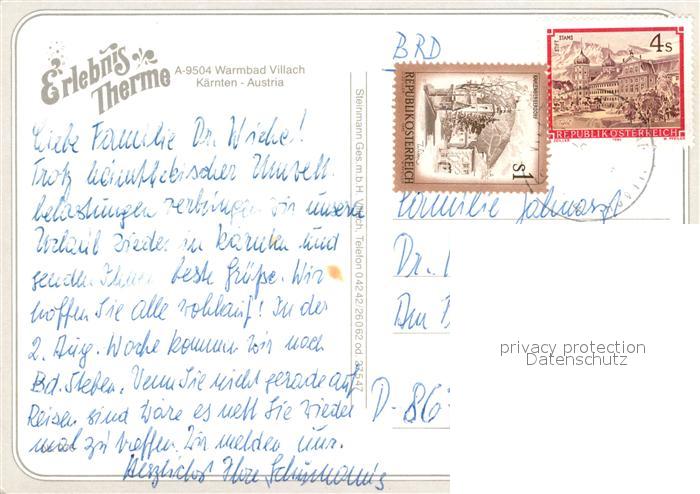 Erlebnis
Therme
A-9504 Warmbad Villach
Kärnten - Austria
Liebe Familie Dr. Wiche!
Trotz Umwelt-
belastungen verbringen wir unseren
Urlaub wieder in Kärnten und
senden Ihnen beste Grüße. Wir
hoffen Sie alle wohlauf! In der
2. Aug. Woche kommen wir nach
Bd. Steben. Wenn Sie nicht gerade auf
Reisen sind wäre es nett Sie wieder
mal zu treffen. Wir melden uns.
Herzlichst Ihre
Steinmann Ges.m.b.H. Villach, Telefon 0 42 42/26 0 62 od. 27 5 47
BRD
REPUBLIK ÖSTERREICH
S1
STIFT STAMS
4 S
REPUBLIK ÖSTERREICH
Familie Zahnarzt
Dr.
Am
D-86
privacy protection
Datenschutz